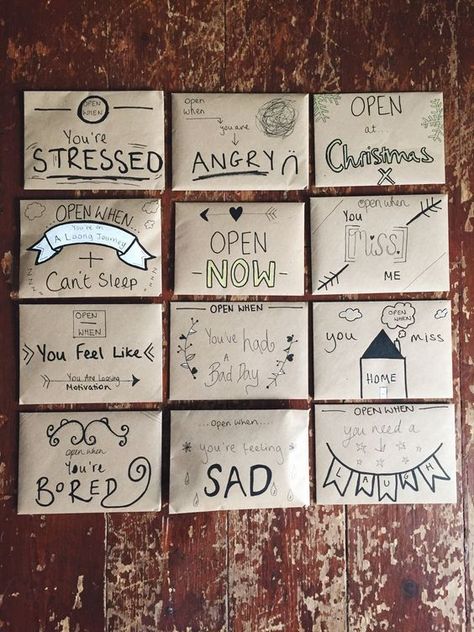 OPEN
WHEN
You're
STRESSED
open
when
you are
ANGRY
OPEN
at
Christmas
X
OPEN WHEN...
You're on
A Loong Journey
+
Can't Sleep
OPEN
NOW
open when
You
Miss
ME
OPEN
WHEN
You Feel Like
You Are Loosing
Motivation
OPEN WHEN
You've had
A
Bad Day
OPEN
WHEN
you miss
HOME
open when
You're
BORED
...open when...
you're feeling
SAD
OPEN WHEN
you need a
LAUGH